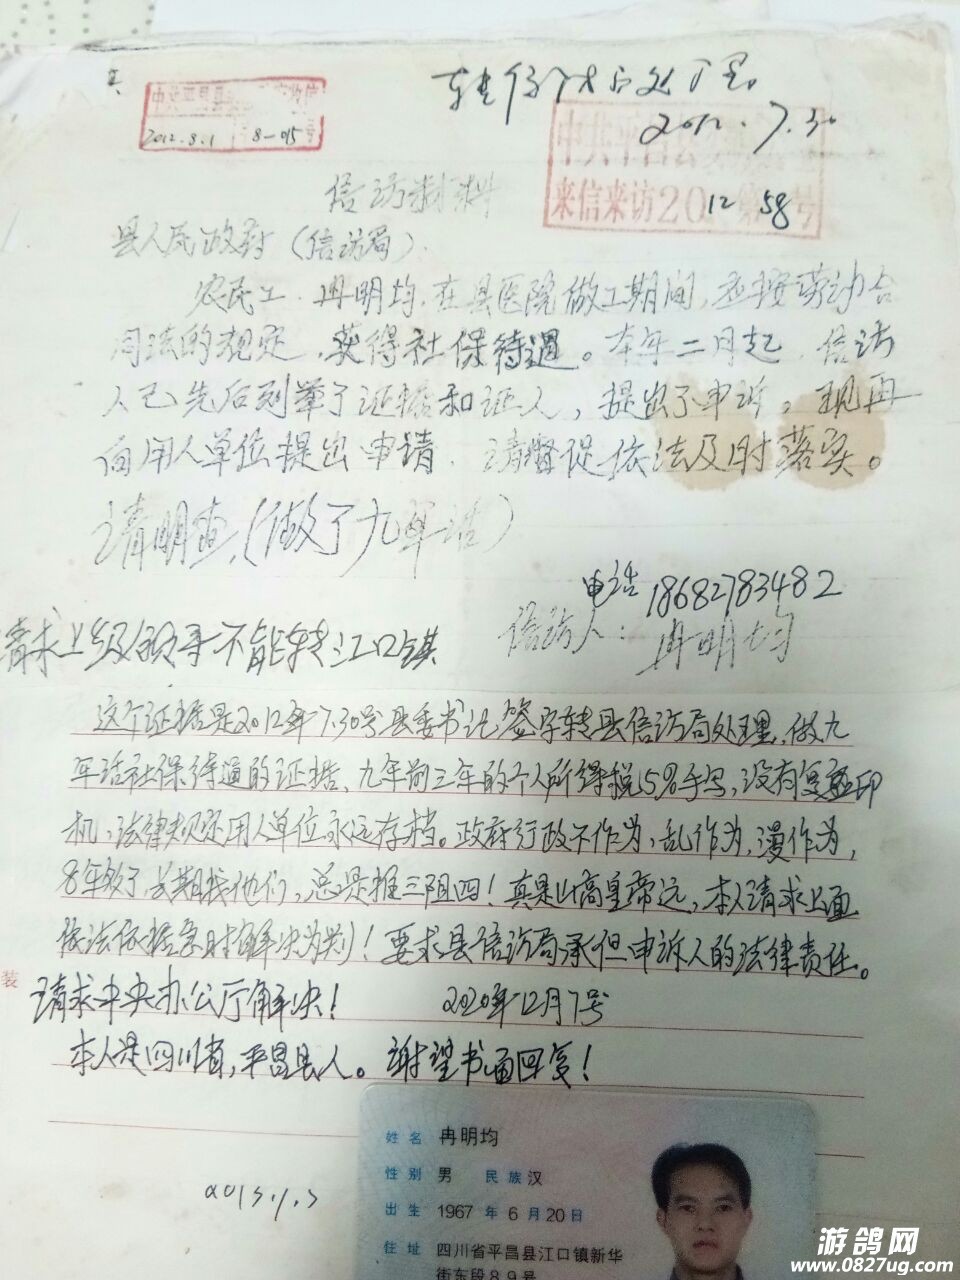 转信访局处理
2012.7.30
2012.8.1 8-015
中共平昌县
来信来访2012 第58号
信访材料
县人民政府（信访局）.
农民工.冉明均.在县医院做工期间,应按劳动合
同法的规定,获得社保待遇。本年二月起.信访
人已先后列举了证据和证人,提出了申诉,现再
向用人单位提出申请.请督促依法及时落实。
请明查.(做了九年活)
电话 18682783482
信访人:冉明均
请求上级领导不能转江口镇
这个证据是2012年7.30号县委书记签字转县信访局处理,做九
年活社保待遇的证据,九年前三年的个人所得税5%手写,没有复印
机,法律规定用人单位永远存档。政府行政不作为,乱作为,漫作为,
8年多了长期找他们,总是推三阻四!真是山高皇帝远,本人请求上面
依法依据急时解决为判!要求县信访局承但申诉人的法律责任。
装
请求中央办公厅解决! 2020年12月7号
本人是四川省,平昌县人。谢望书面回复!
2013.1.3
姓名 冉明均
性别 男 民族 汉
出生 1967 年 6 月 20 日
住址 四川省平昌县江口镇新华
街东段89号
游鸽网
www.0827ug.com